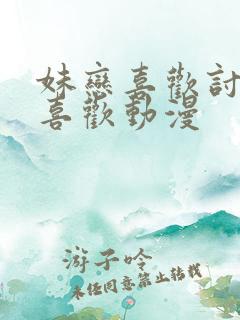 妹戀喜歡討
喜歡動漫
游子吟
未經同意禁止轉載